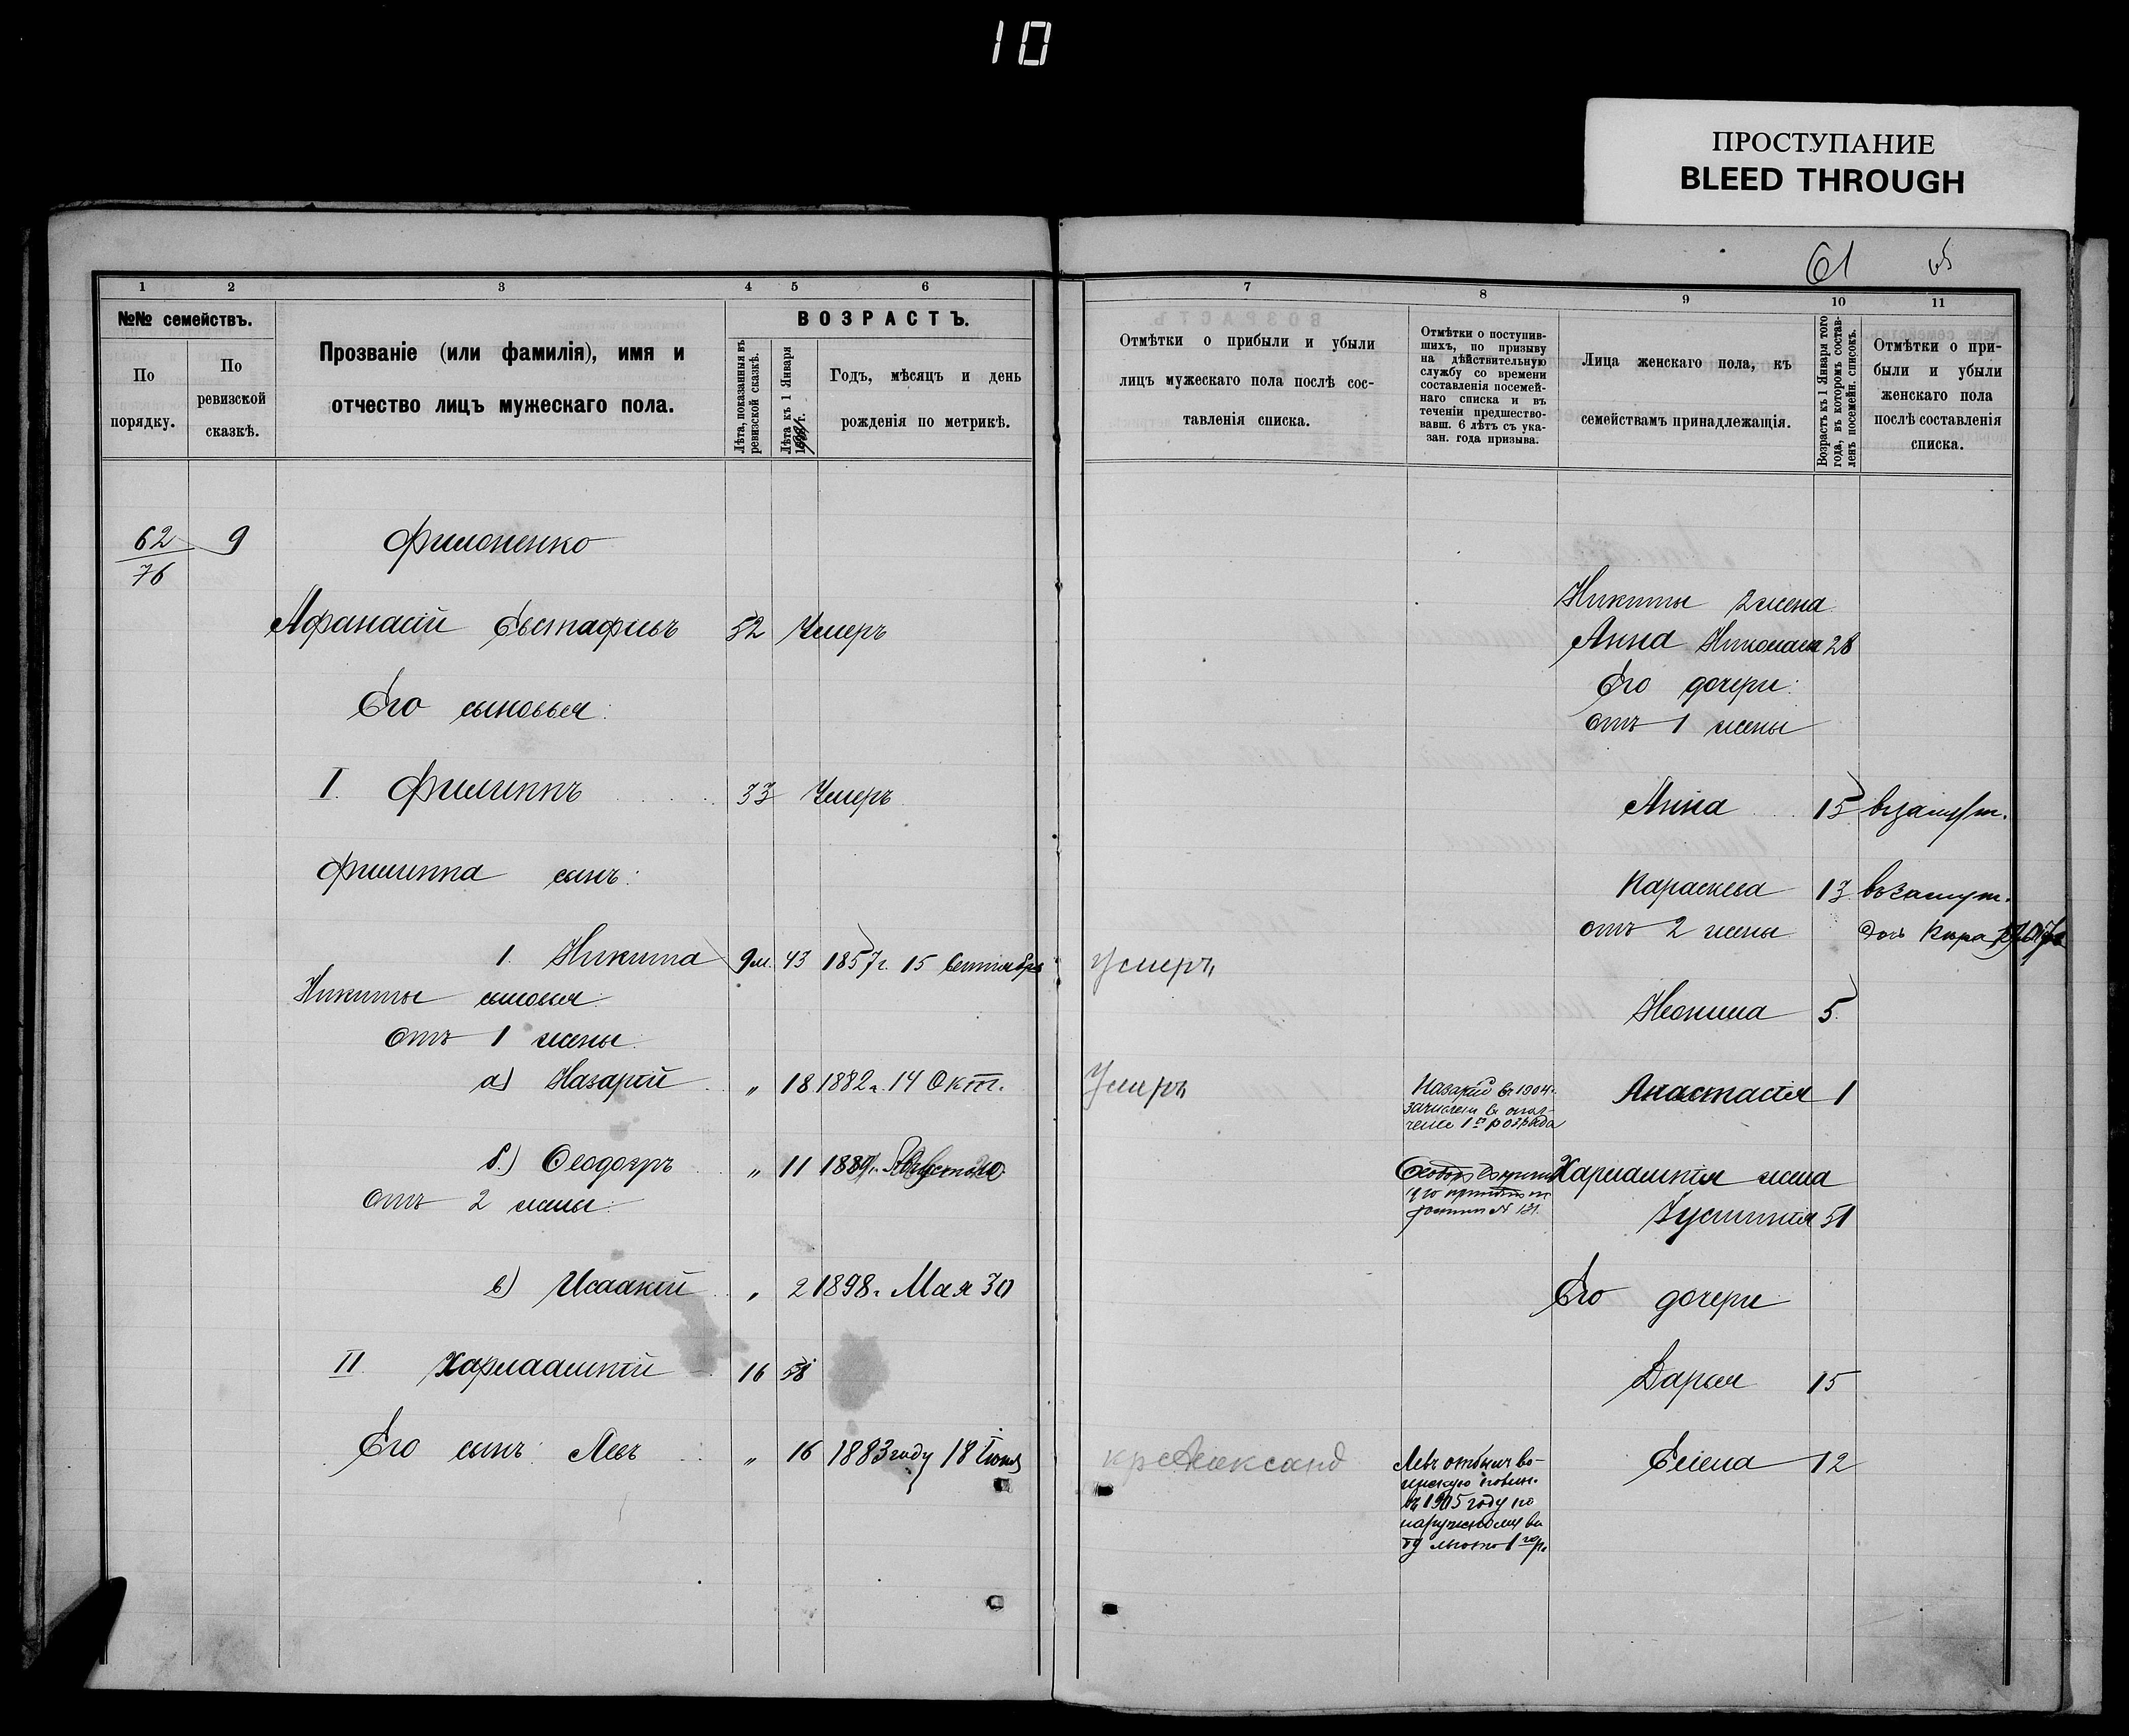 10
ПРОСТУПАНИЕ
BLEED THROUGH
61
1 2 3 4 5 6
№№ семействъ.
По порядку.
По ревизской сказкѣ.
Прозваніе (или фамилія), имя и
отчество лицъ мужескаго пола.
ВОЗРАСТЪ.
Лѣта, показанныя въ
ревизской сказкѣ.
Лѣта къ 1 Января
Годъ, мѣсяцъ и день
рожденія по метрикѣ.
62 9
76
Филоненко
Афанасій Евстафьевъ 52 Умеръ
Его сыновья:
I. Филиппъ 33 Умеръ
Филиппа сынъ:
1. Никита 9м. 43 1857г. 15 Сентября
Никиты сыновья:
Отъ 1 жены:
а) Назарій " 18 1882г. 14 Окт.
б.) Ѳеодоръ " 11 1889г.
Отъ 2 жены:
в) Исаакій " 2 1898г. Мая 30
II Харлаампій 16 58
Его сынъ: Левъ " 16 1883 году 18 Іюня
7 8 9 10 11
Отмѣтки о прибыли и убыли
лицъ мужескаго пола послѣ сос-
тавленія списка.
Отмѣтки о поступив-
шихъ, по призыву
на дѣйствительную
службу со времени
составленія посемей-
наго списка и въ
теченіи предшество-
вавш. 6 лѣтъ съ ука-
зан. года призыва.
Лица женскаго пола, къ
семействамъ принадлежащія.
Возрастъ къ 1 Января того
года, въ которомъ состав-
ленъ посемейн. списокъ.
Отмѣтки о при-
были и убыли
женскаго пола
послѣ составленія
списка.
Никиты 2 жена
Анна Николаева 28
Его дочери:
отъ 1 жены
Анна 15 въ замуж.
Параскева 13 въ замуж.
отъ 2 жены дочь Кира
Умеръ
Неонила 5
Умеръ
Назарій въ 1904г.
зачисленъ въ опол-
ченіе 1го разряда
Анастасія 1
Ѳеодоръ
№ 131.
Харлампія жена
Іустинія 51
Его дочери
Дарья 15
Александ
Левъ отбылъ во-
инскую повин.
въ 1905 году по
наружному ви-
ду
Елена 12